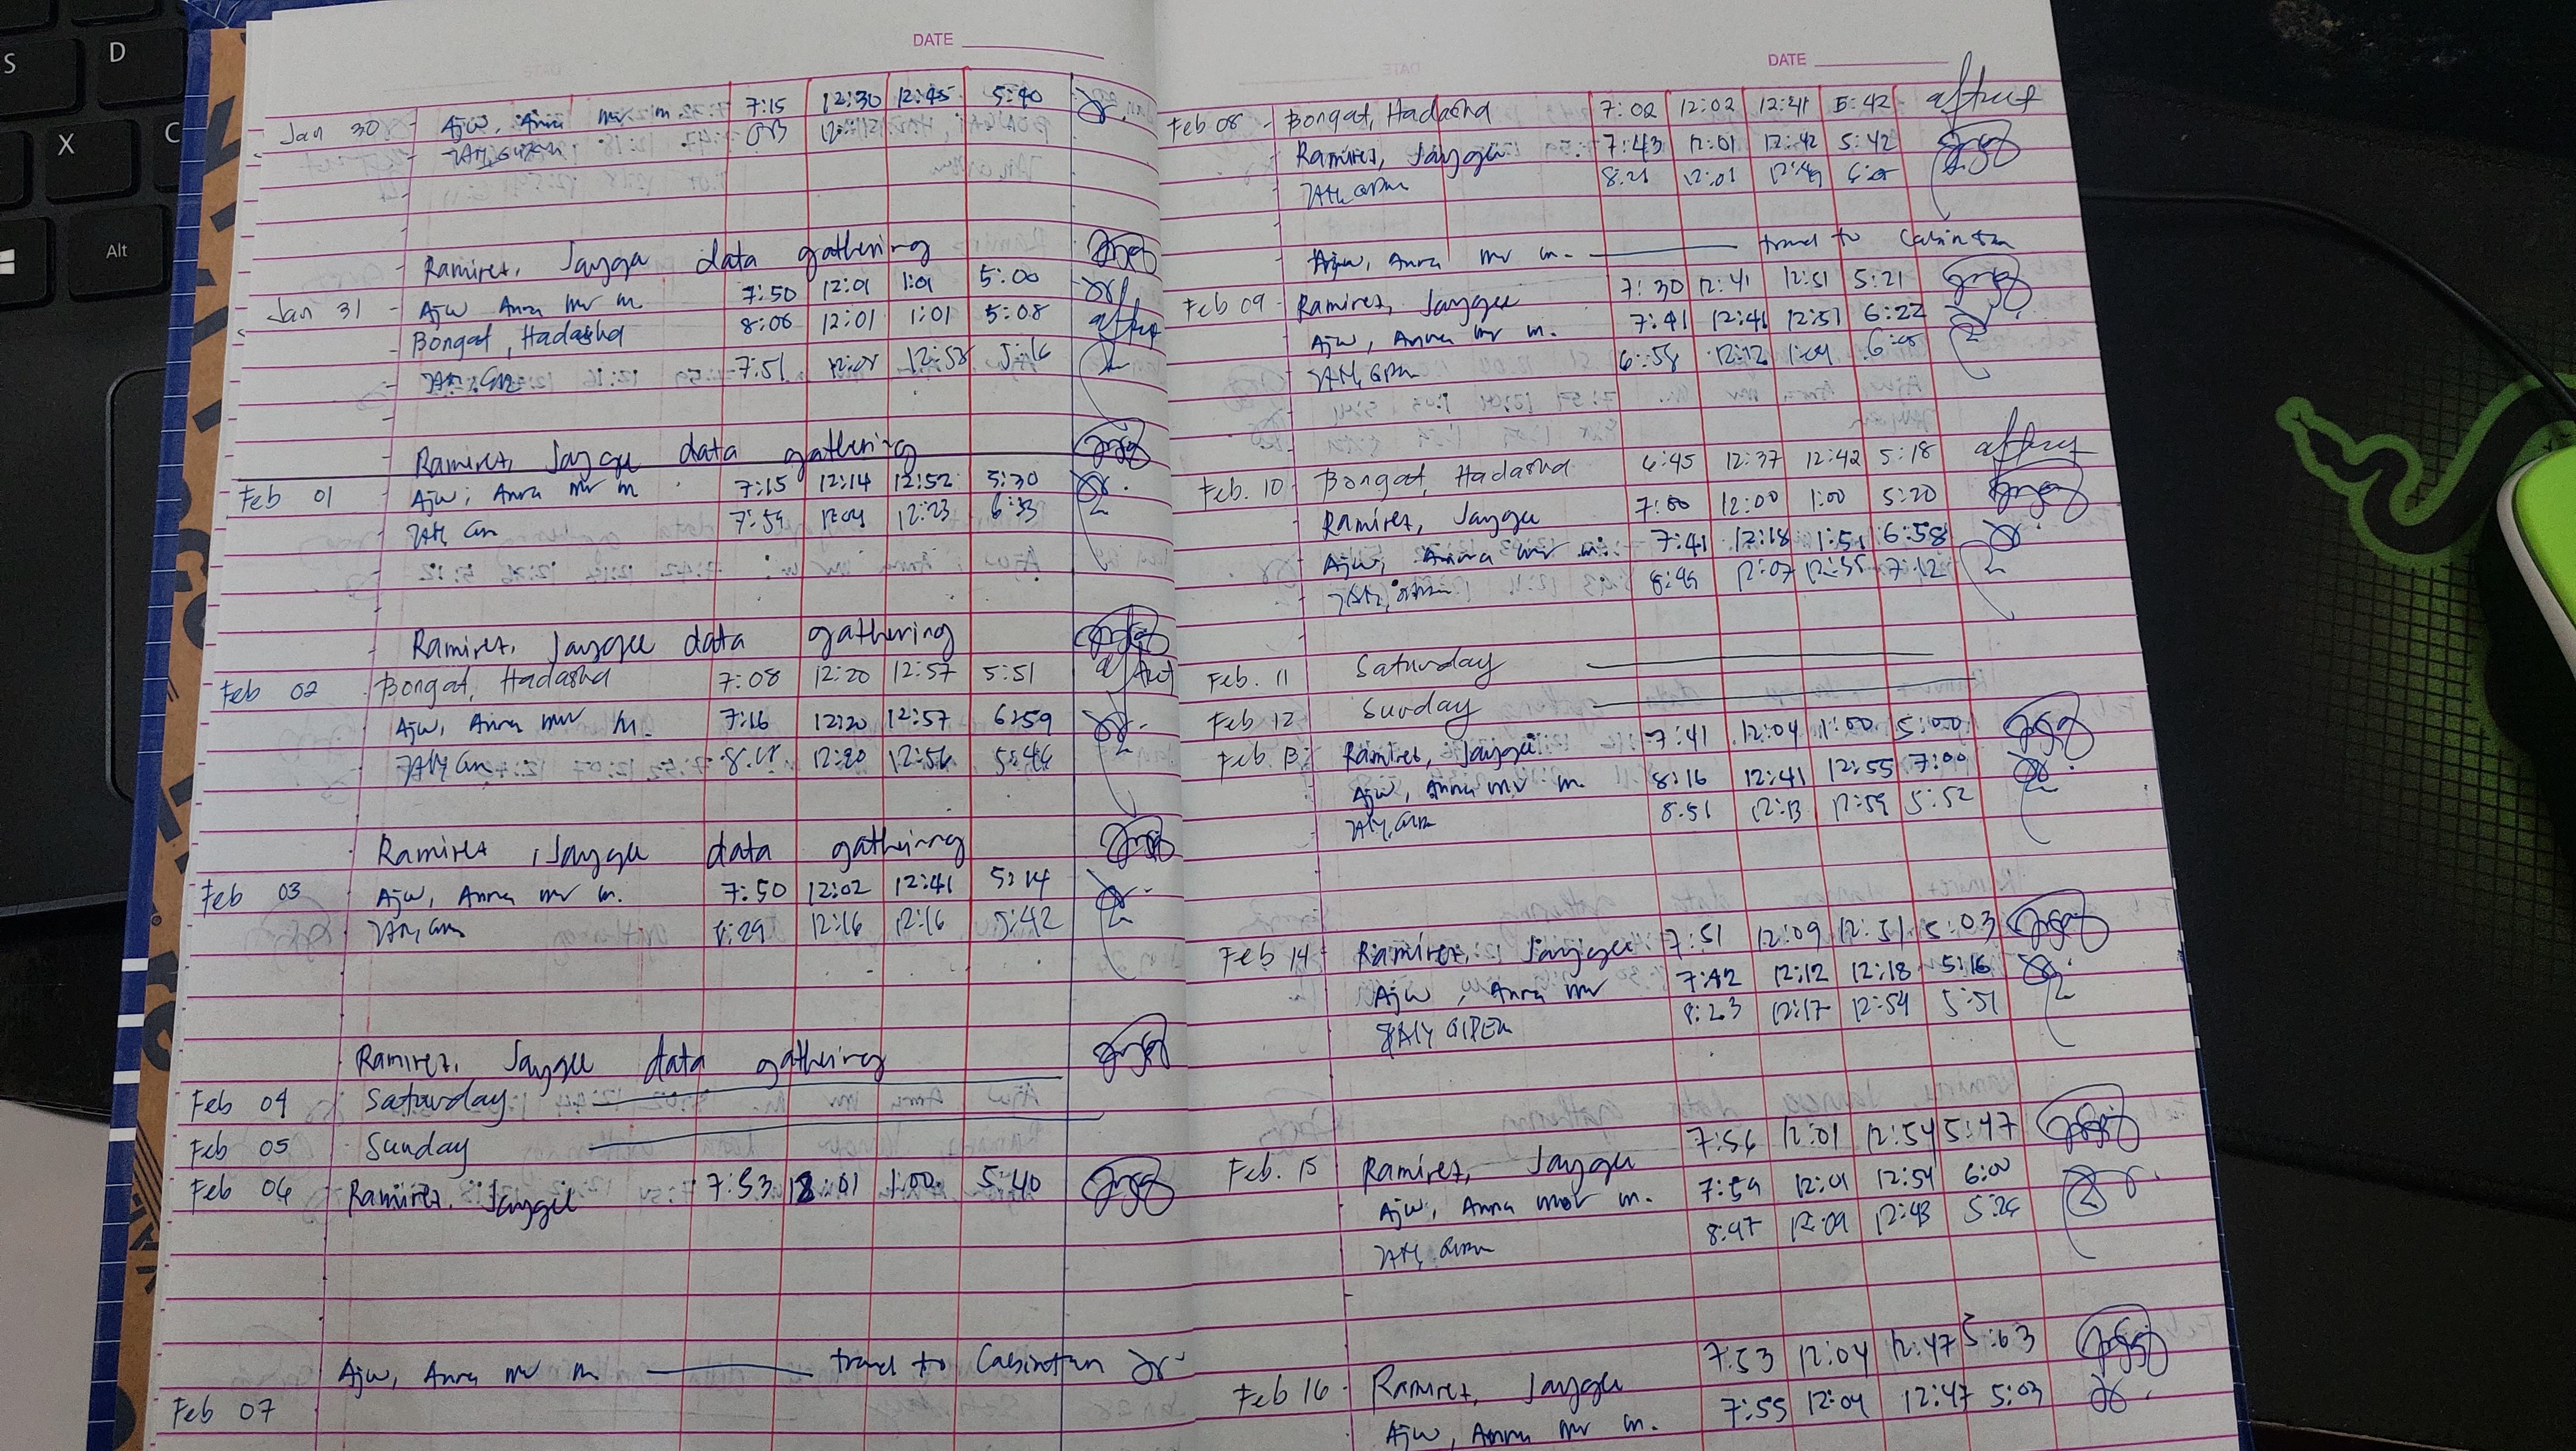 DATE
Jan 30 - Ajw, Anna mr m. 7:15 12:30 12:45 5:40
OB
Ramirez, Jaygee data gathering
Jan 31 - Ajw Anna mr m 7:50 12:01 1:01 5:00
Bongat, Hadasha 8:06 12:01 1:01 5:08
7:51 12:58
Ramirez, Jaygee data gathering
Feb 01 Ajw, Anna mr m 7:15 12:14 12:52 5:30
12:23 6:33
Ramirez, Jaygee data gathering
Feb 02 Bongat, Hadasha 7:08 12:20 12:57 5:51
Ajw, Anna mr m. 7:16 12:20 12:57 6:59
12:20 12:56 5:46
Ramirez, Jaygee data gathering
Feb 03 Ajw, Anna mr m. 7:50 12:02 12:41 5:14
8:29 12:16 12:16 5:42
Ramirez, Jaygee data gathering
Feb 04 Saturday
Feb 05 Sunday
Feb 06 Ramirez, Jaygee 7:53 12:01 1:00 5:40
Ajw, Anna mr m travel to Cabintan
Feb 07
DATE
Feb 08 - Bongat, Hadasha 7:02 12:02 12:41 5:42
Ramirez, Jaygee 7:43 12:01 12:42 5:42
8:21 12:01
Ajw, Anna mr m. travel to Cabintan
Feb 09 - Ramirez, Jaygee 7:30 12:41 12:51 5:21
Ajw, Anna mr m. 7:41 12:41 12:51 6:22
6:58 12:12
Feb. 10 Bongat, Hadasha 6:45 12:37 12:42 5:18
Ramirez, Jaygee 7:00 12:00 1:00 5:20
Ajw, Anna mr m 7:41 12:18 1:51 6:58
12:07 12:55 7:12
Feb. 11 Saturday
Feb 12 Sunday
Feb. 13 Ramirez, Jaygee 7:41 12:04 1:00 5:00
Ajw, Anna mr m 8:16 12:41 12:55 7:00
8:51 12:13 12:59 5:52
Feb 14 Ramirez, Jaygee 7:51 12:09 12:51 5:03
Ajw, Anna mr 7:42 12:12 12:18 5:16
8:23 12:17 12:54 5:51
Feb. 15 Ramirez, Jaygee 7:56 12:01 12:54 5:47
Ajw, Anna mr m. 7:59 12:01 12:54 6:00
8:47 12:09 12:43
Feb 16 - Ramirez, Jaygee 7:53 12:04 12:47 5:03
Ajw, Anna mr m. 7:55 12:04 12:47 5:03
S
D
X
C
Alt